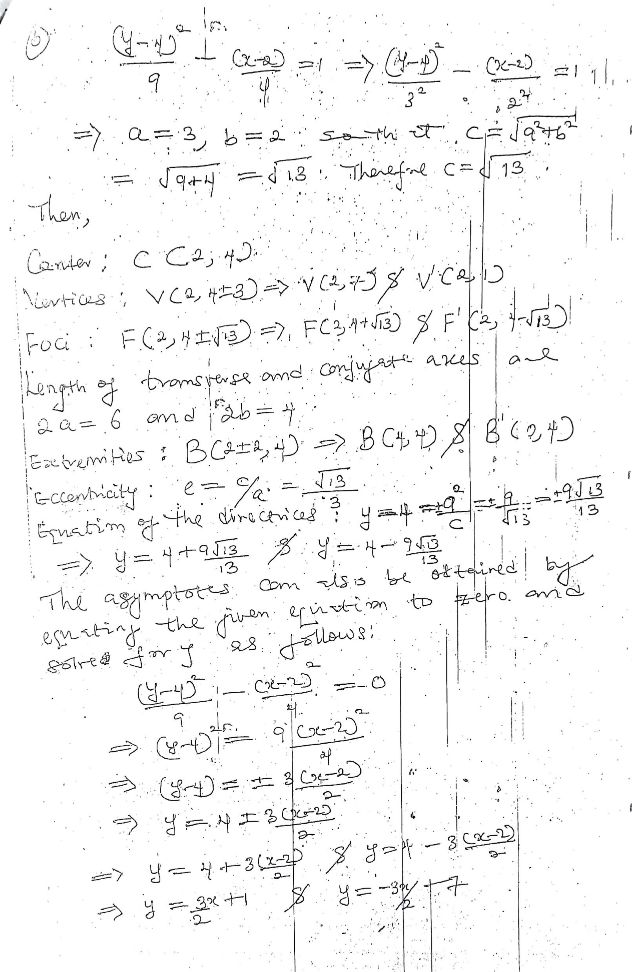 (b) (y-4)²/9 - (x-2)/4 = 1 => (y-4)²/3² - (x-2)/2² = 1
=> a = 3, b = 2 so that c = √a²+b²
= √9+4 = √13. Therefore c = √13.
Then,
Center: C (2, 4).
Vertices: V(2, 4±3) => V(2, 7) & V'(2, 1)
Foci: F(2, 4±√13) => F(2, 4+√13) & F'(2, 4-√13)
Length of transverse and conjugate axes are
2a = 6 and 2b = 4
Extremities: B(2±2, 4) => B(4, 4) & B'(0, 4)
Eccentricity: e = c/a = √13/3
Equation of the directrices: y-4 = ±a²/c = ±9/√13 = ±9√13/13
=> y = 4 + 9√13/13 & y = 4 - 9√13/13
The asymptotes can also be obtained by
equating the given equation to zero and
solve for y as follows:
(y-4)²/9 - (x-2)²/4 = 0
=> (y-4)² = 9(x-2)²/4
=> (y-4) = ± 3(x-2)/2
=> y = 4 ± 3(x-2)/2
=> y = 4 + 3(x-2)/2 & y = 4 - 3(x-2)/2
=> y = 3x/2 + 1 & y = -3x/2 + 7